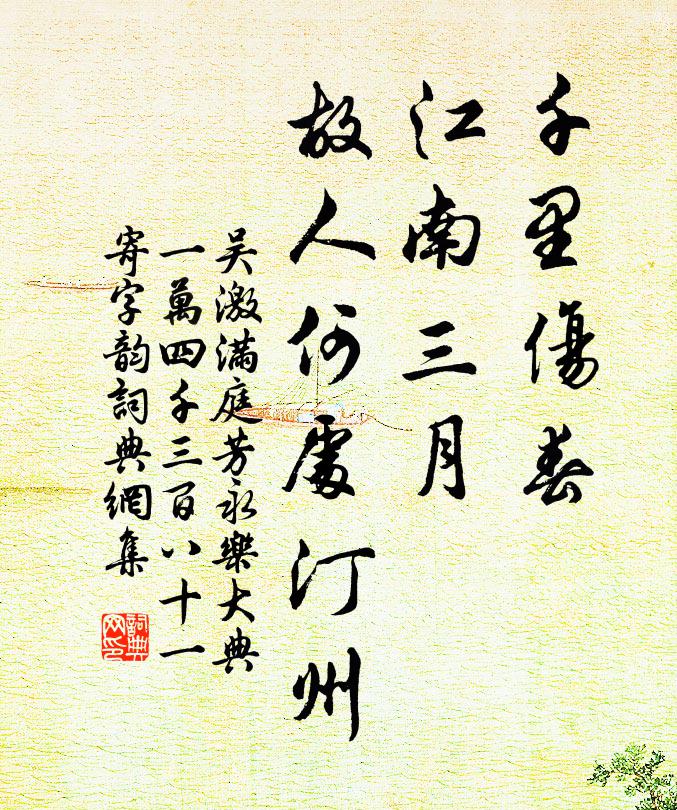 千里傷春
江南三月
故人何處汀州
吴激滿庭芳永樂大典
一萬四千三百八十一
寄字韵詞典網集
詞典网印